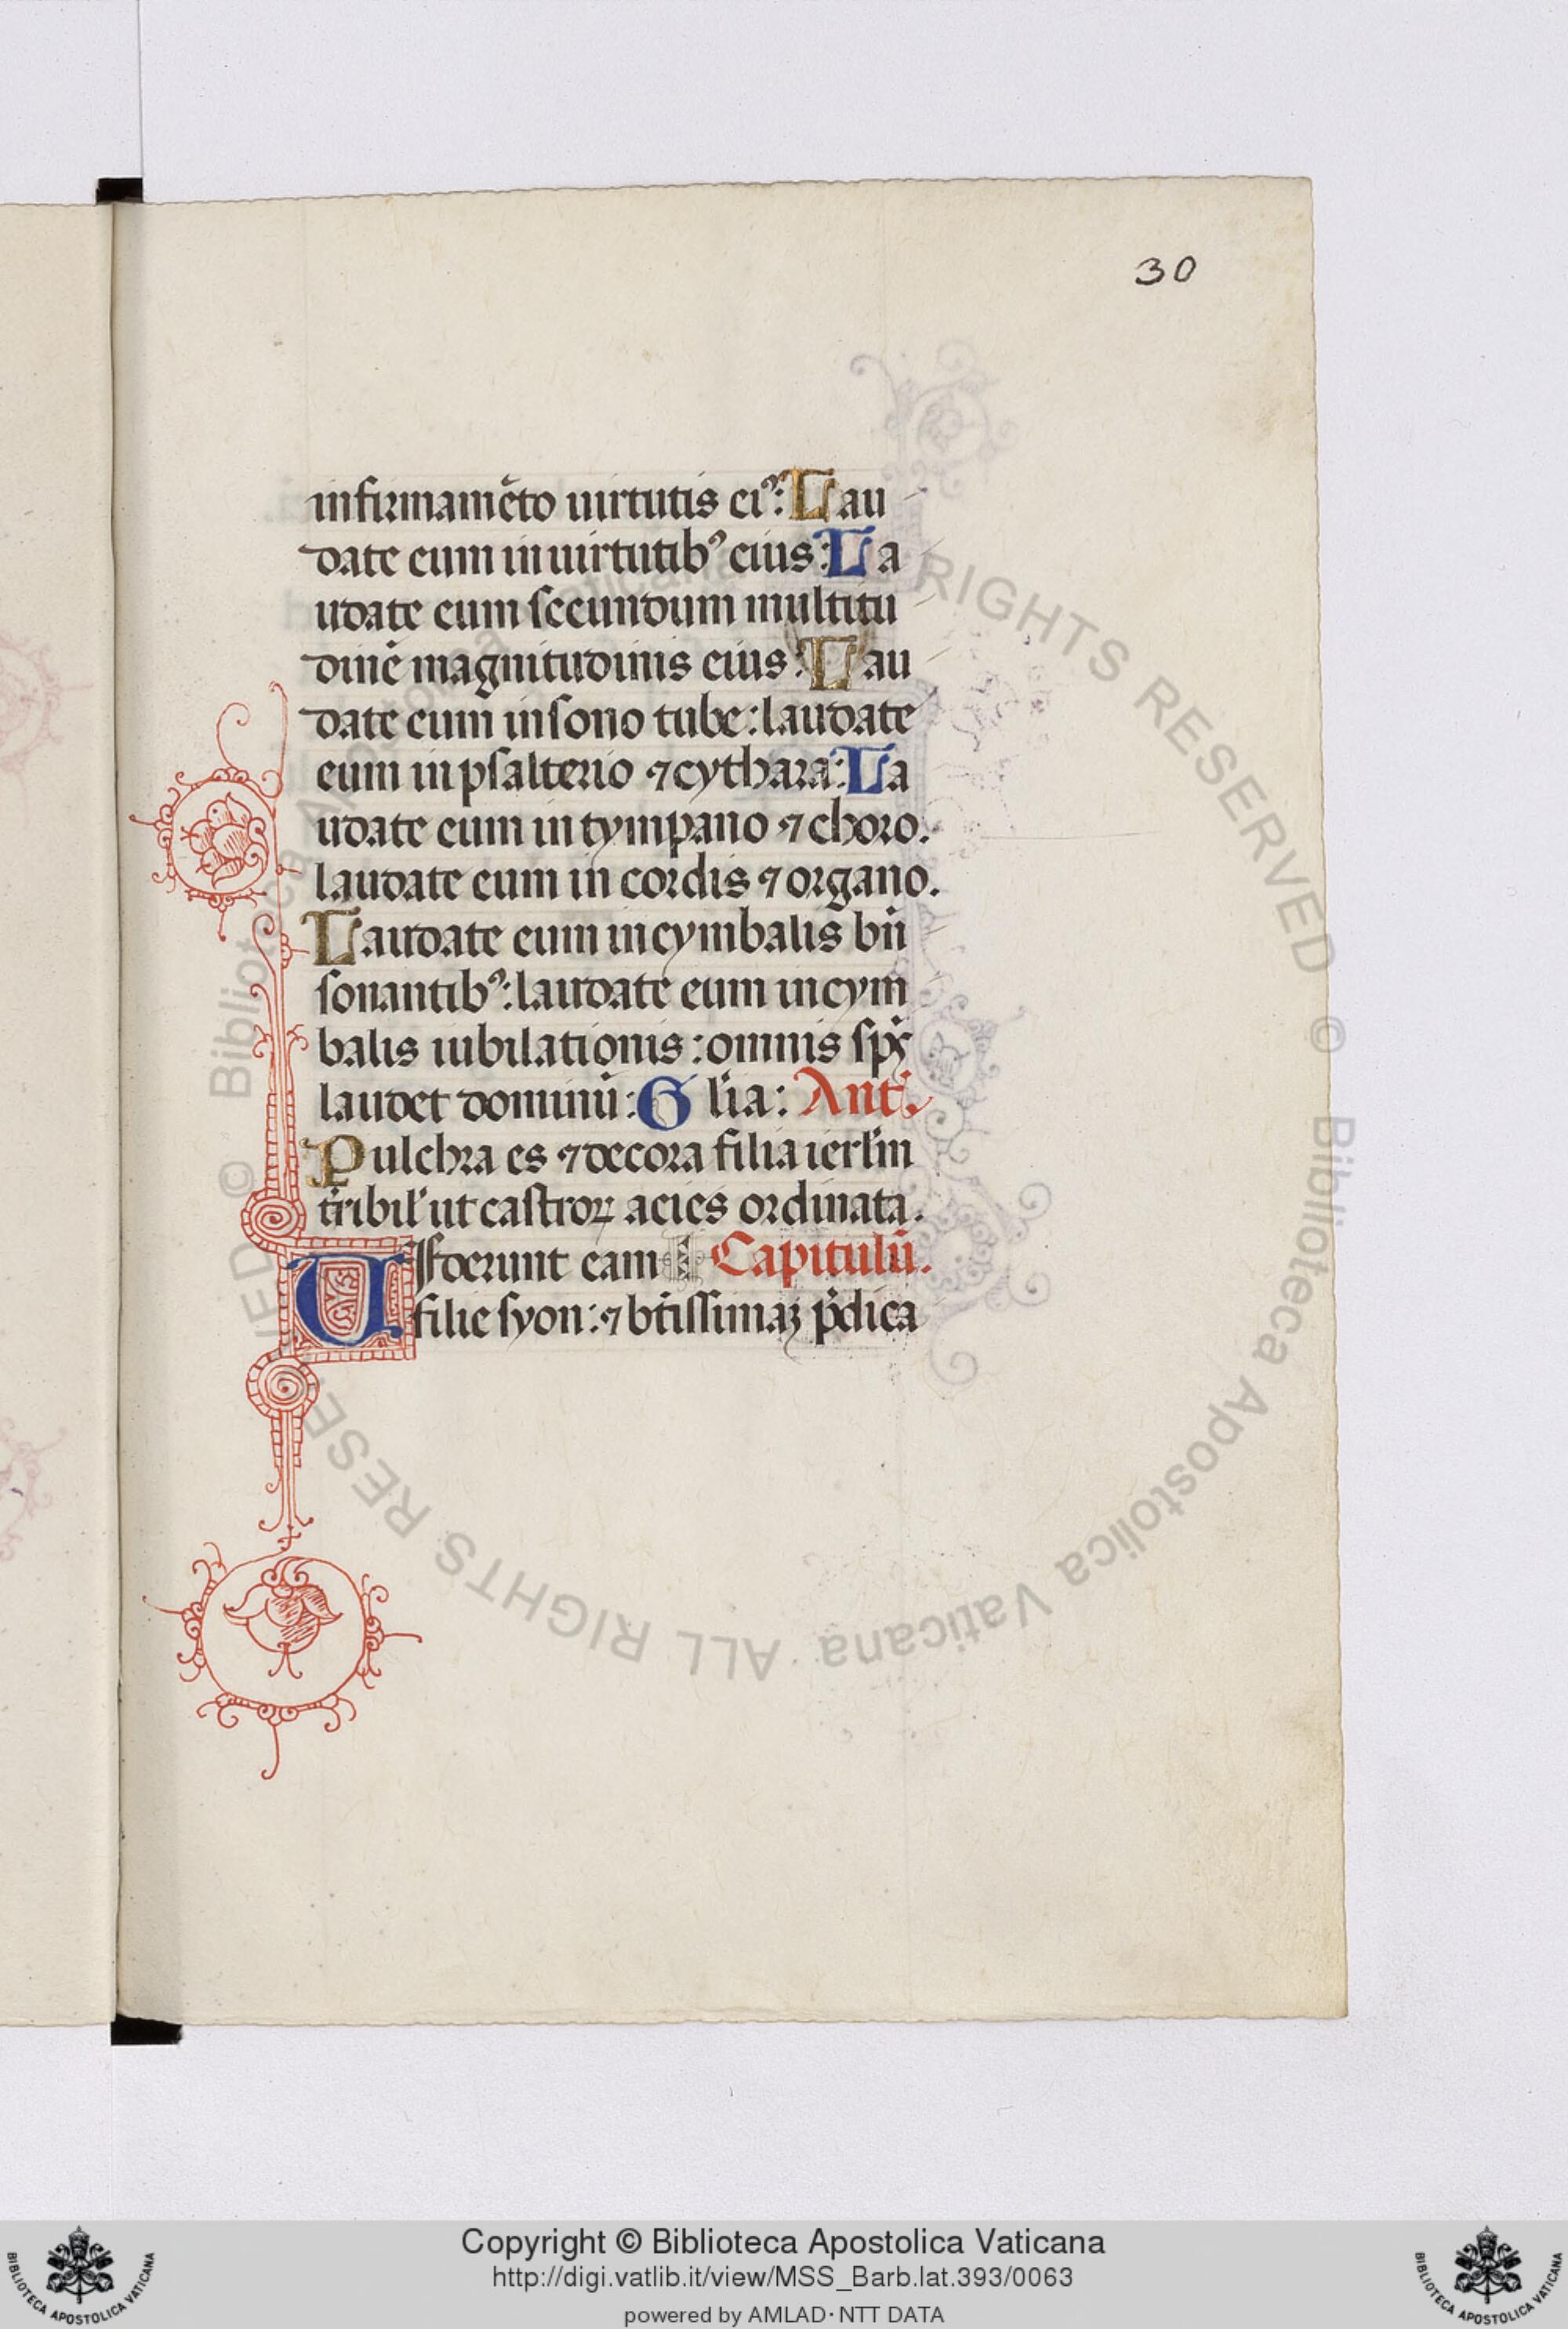 30
infirmamēto uirtutis eiꝰ: Lau
date eum in uirtutibꝰ eius: La
udate eum secundum multitu
dinē magnitudinis eius: Lau
date eum in sono tube: laudate
eum in psalterio ⁊ cythara: La
udate eum in tympano ⁊ choro.
laudate eum in cordis ⁊ organo.
Laudate eum in cymbalis bn̄
sonantibꝰ: laudate eum in cym
balis iubilationis: omnis sp̄s
laudet dominū: Gl'ia: Ant'.
Pulchra es ⁊ decora filia ierl'm
t'ribil' ut castroꝝ acies ordinata.
Uiderunt eam Capitulū.
filie syon: ⁊ bt̄issimaꝫ p̄dica
© Biblioteca Apostolica Vaticana ALL RIGHTS RESERVED
© Biblioteca Apostolica Vaticana ALL RIGHTS RESERVED
Copyright © Biblioteca Apostolica Vaticana
http://digi.vatlib.it/view/MSS_Barb.lat.393/0063
powered by AMLAD · NTT DATA
BIBLIOTECA APOSTOLICA VATICANA
BIBLIOTECA APOSTOLICA VATICANA